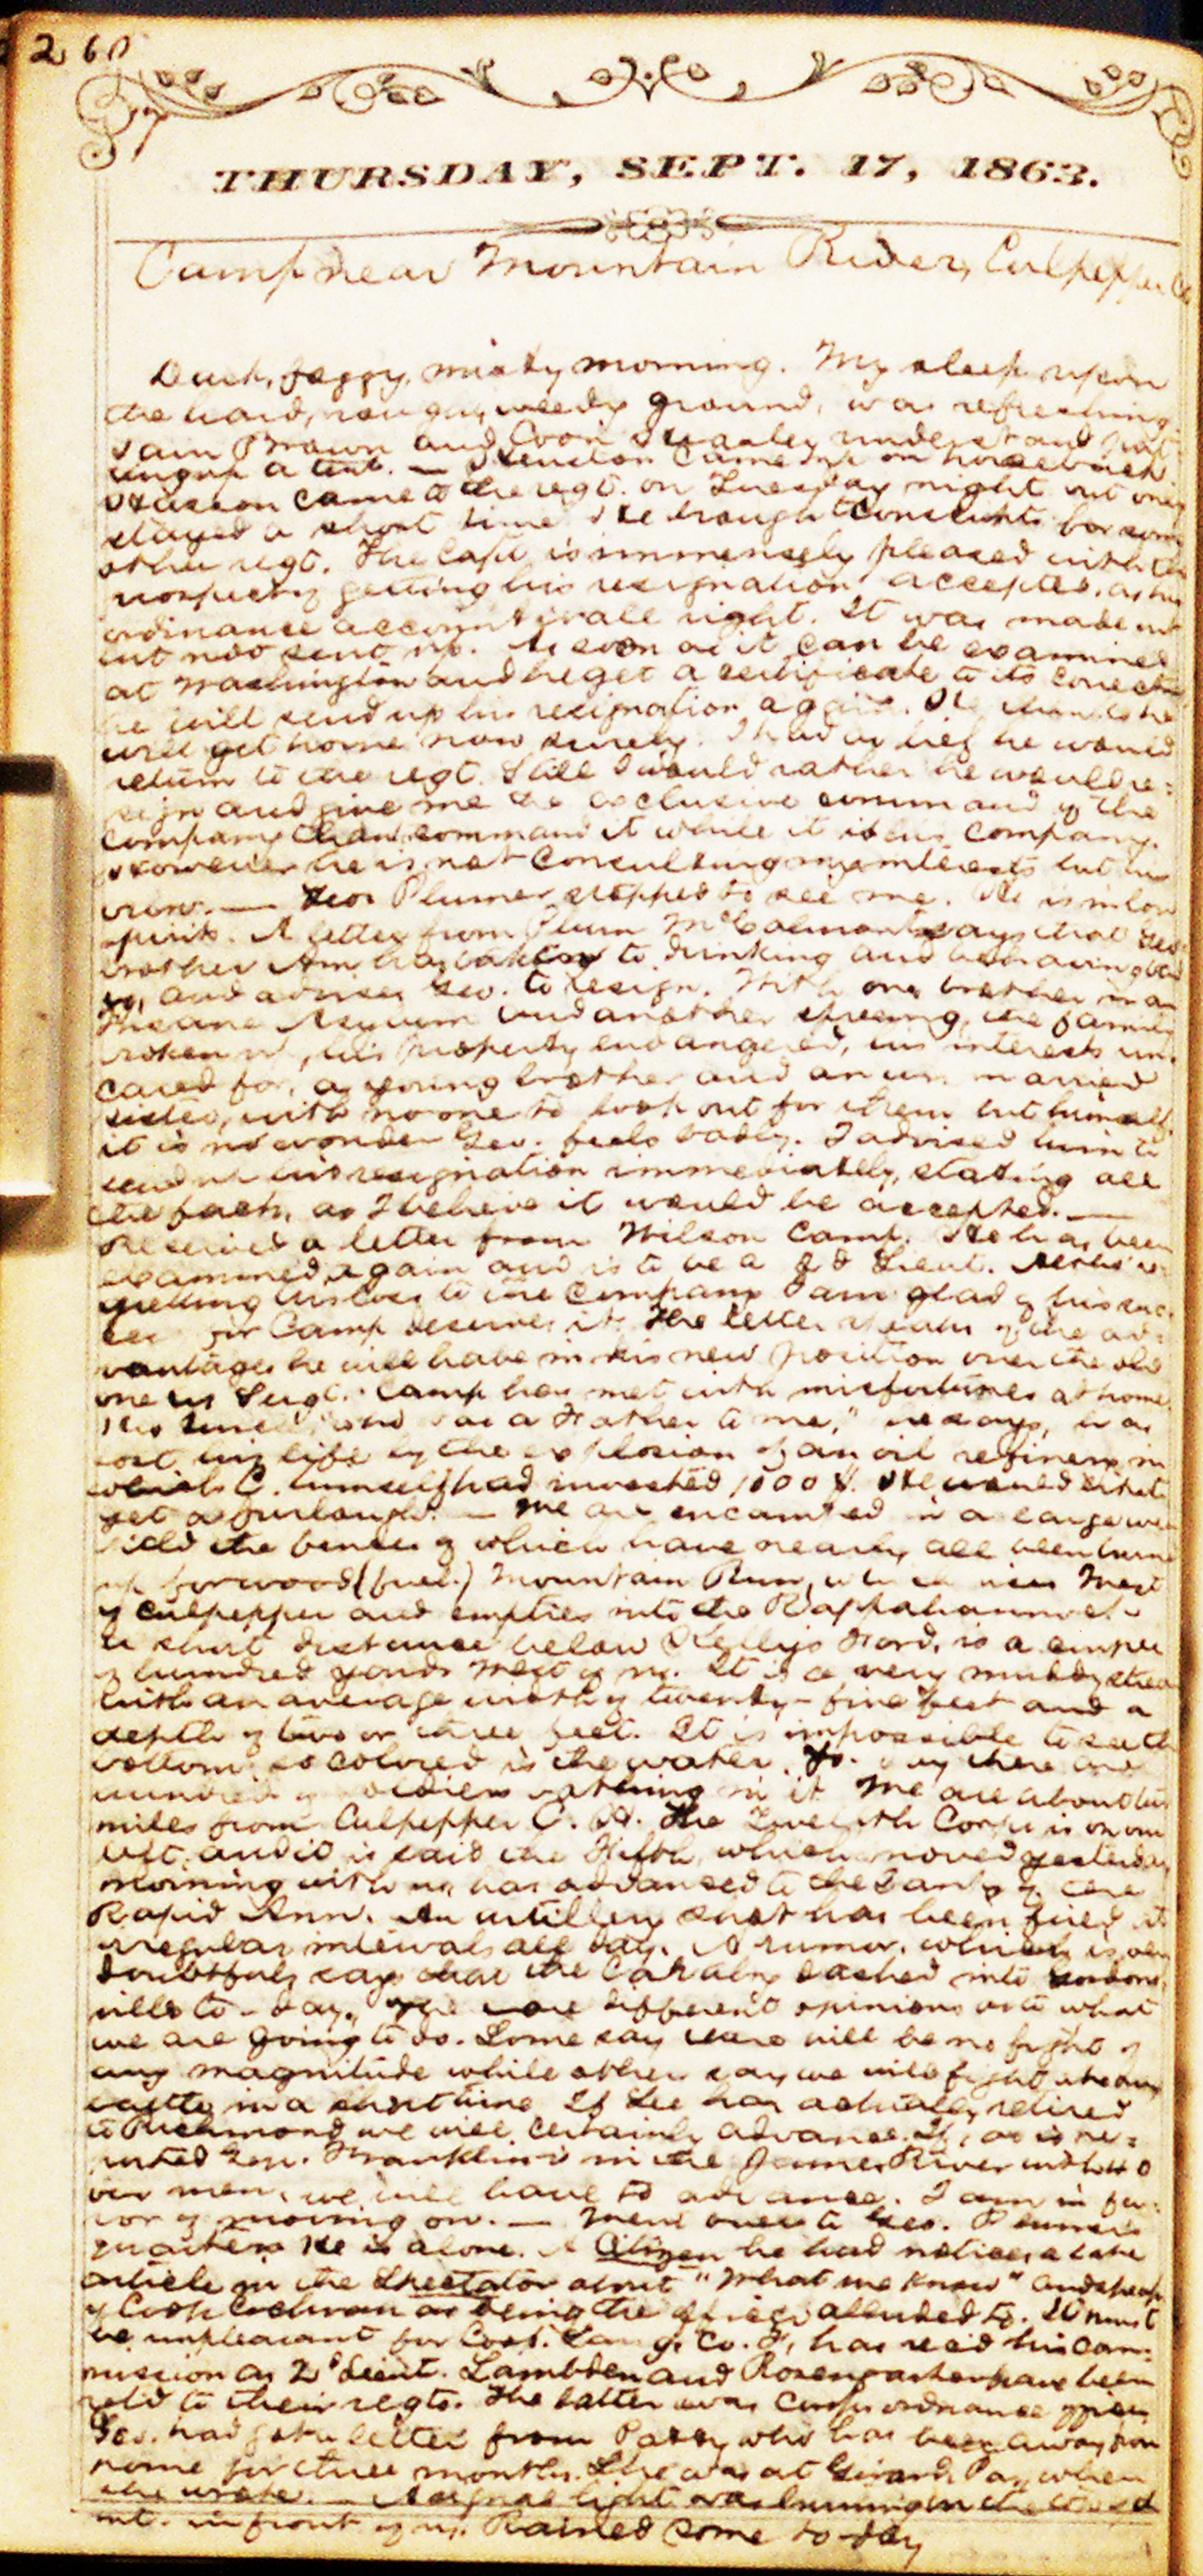 260
THURSDAY, SEPT. 17, 1863.
Camp near Mountain River, Culpepper Co
foggy, misty morning. My sleep upon
the hard, rough, weedy ground, was refreshing.
Sam Brown and understand put-
ting up a tent. — came up on horseback
came to the regt. on Tuesday night but only
stayed a short time. He brought conscripts for some
other regt. The Capt. is immensely pleased with the
prospect of getting his resignation accepted, as his
ordinance account is all right. It was made out
but not sent up. As soon as it can be examined
at Washington and he get a certificate to its correctness
he will send up his resignation again. He thinks he
will get home now surely. I had as lief he would
return to the regt. Still I would rather he would re=
sign and give me the exclusive command of the
company than command it while it is his company.
However he is not consulting my interests but his
own. — Geo. Plumer stopped to see me. He is in low
spirits. A letter from McCalmont says that Geo's
brother has taken to drinking and behaving bad
ly, and advises Geo. to resign. With one brother in an
Insane Asylum and another the family
broken up, his property endangered, his interests un-
cared for, a young brother and an un married
sister, with no one to look out for them but himself,
it is no wonder Geo. feels badly. I advised him to
send up his resignation immediately, stating all
the facts, as I believe it would be accepted. —
Received a letter from Wilson Camp. He has been
examined again and is to be a 2d Lieut.
to the company I am glad of his suc-
cess for Camp deserves it. The letter speaks of the ad=
vantages he will have in his new position over the old
one as Sergt. Camp has met with misfortunes at home.
His uncle "who was a Father to me," he says, has
lost his life by the explosion of an oil refinery in
which C. himself had invested 1000 $. He
get a furlough. — We are encamped in a large
field the fences of which have nearly all been burned
up for wood (fuel.) Mountain Run, which rises West
of Culpepper and empties into the Rappahannock
a short distance below Kelly's Ford, is a couple
of hundred yards West of us. It is a very muddy stream
with an average width of twenty-five feet and a
depth of two or three feet. It is impossible to see the
bottom so colored is the water. To-day there are
hundreds of soldiers bathing in it. We are about
miles from Culpepper C. H. The Twelfth Corps is on our
left, and it is said the Fifth, which moved yesterday
morning with us, has advanced to the banks of the
Rapid Ann. An artillery shot has been fired at
irregular intervals all day. A rumor, which is very
doubtful, says that the Cavalry dashed into Gordons-
ville to-day. There are different opinions as to what
we are going to do. Some say there will be no fight of
any magnitude while others say we will fight a heavy
battle in a short time. If Lee has actually retired
to Richmond we will certainly advance. If, as is re=
ported Gen. Franklin is in the James River with
men, we will have to advance. I am in fa-
vor of moving on. — Went over to Geo. Plumer's
quarters. He is alone. A Citizen he had notices a late
article in the Spectator about "What we know" and speaks
of Cochran as being the officer alluded to. It must
be unpleasant for Lang, Co. F, has rec'd his com=
mission as 2d Lieut. Lambden and Rosengarten have been
rel'd to their regts. The latter was Corps ordnance officer
Geo. had got a letter from who has been away from
home for three months. She was at Girard, Pa., when
she wrote. — A signal light was burning on the
mt. in front of us. Rained some to-day